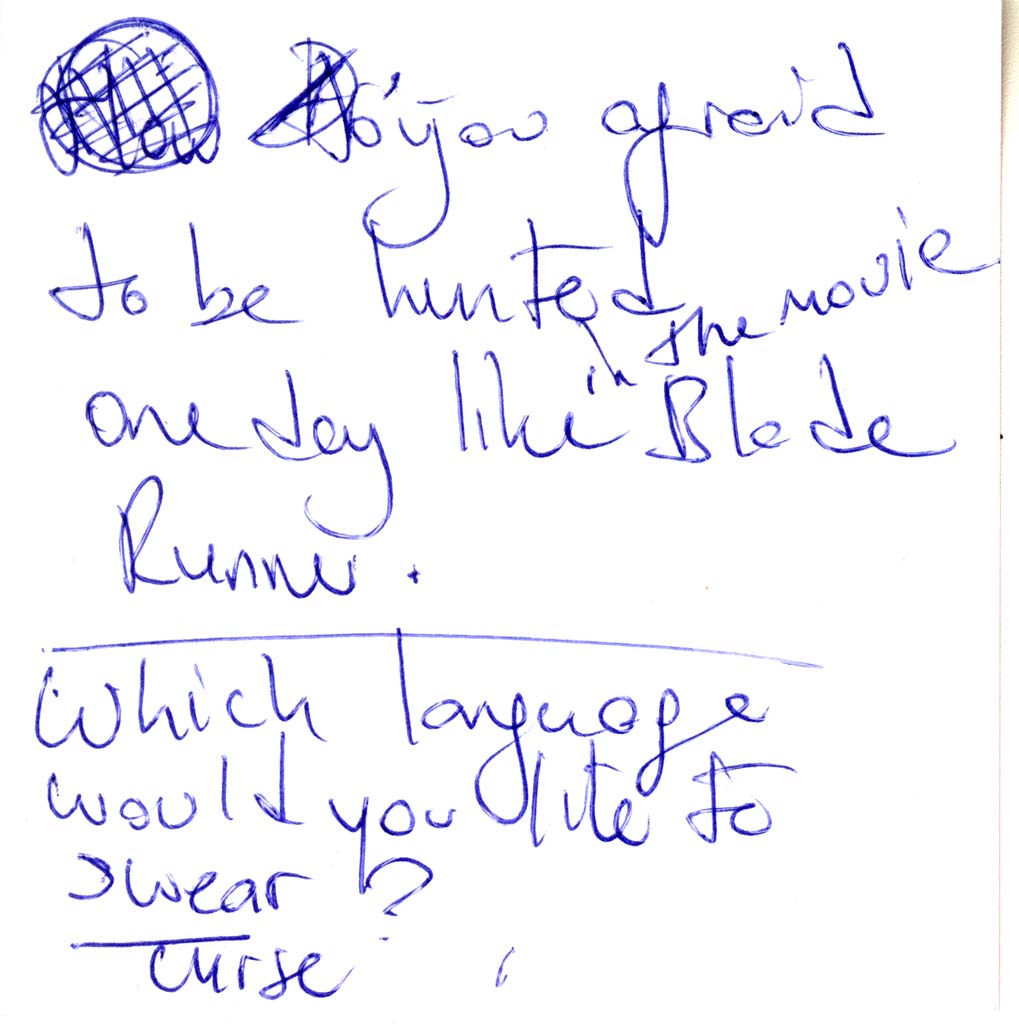 Do you afraid
to be hunted
one day like in the movie Blade
Runner.
Which language
would you like to
swear?
curse